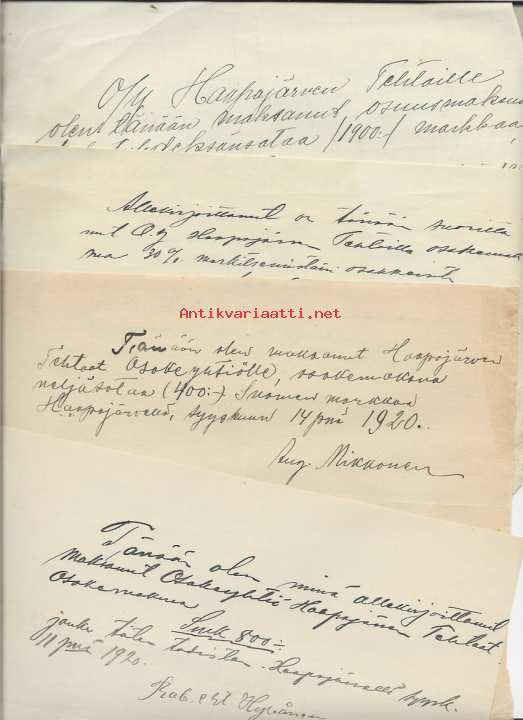 O/y Haapajärven Tehtaille
olen tänään maksanut osuusmaksua
/1900:-/ markkaa
Allekirjoittanut on tänään suoritta
nut O.y Haapajärven Tehtaille osakemak
sua 30% merkitsemistäni osakkeista
Antikvariaatti.net
Tänään olen maksanut Haapajärven
Tehtaat Osakeyhtiölle, osakemaksua
neljäsataa (400:-) Suomen markkaa
Haapajärvellä, syyskuun 14 pnä 1920.
Aug Mikkonen
Tänään olen minä allekirjoittanut
maksanut Osakeyhtiö Haapajärven Tehtaat.
Osakemaksua Smk 800:-
jonka täten todistan. Haapajärvellä syysk.
11 pnä 1920.